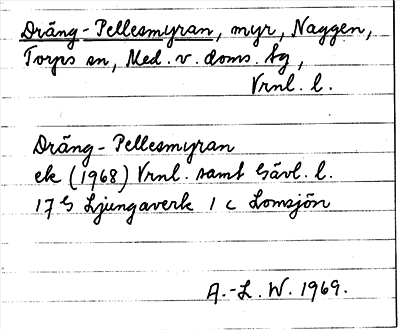 Dräng-Pellesmyran, myr, Naggen,
Torps sn, Med. v. doms. tg,
Vrnl. l.
Dräng-Pellesmyran
ek (1968) Vrnl. samt Gävl. l.
17 G Ljungaverk 1 c Lomsjön
A.-L. W. 1969.